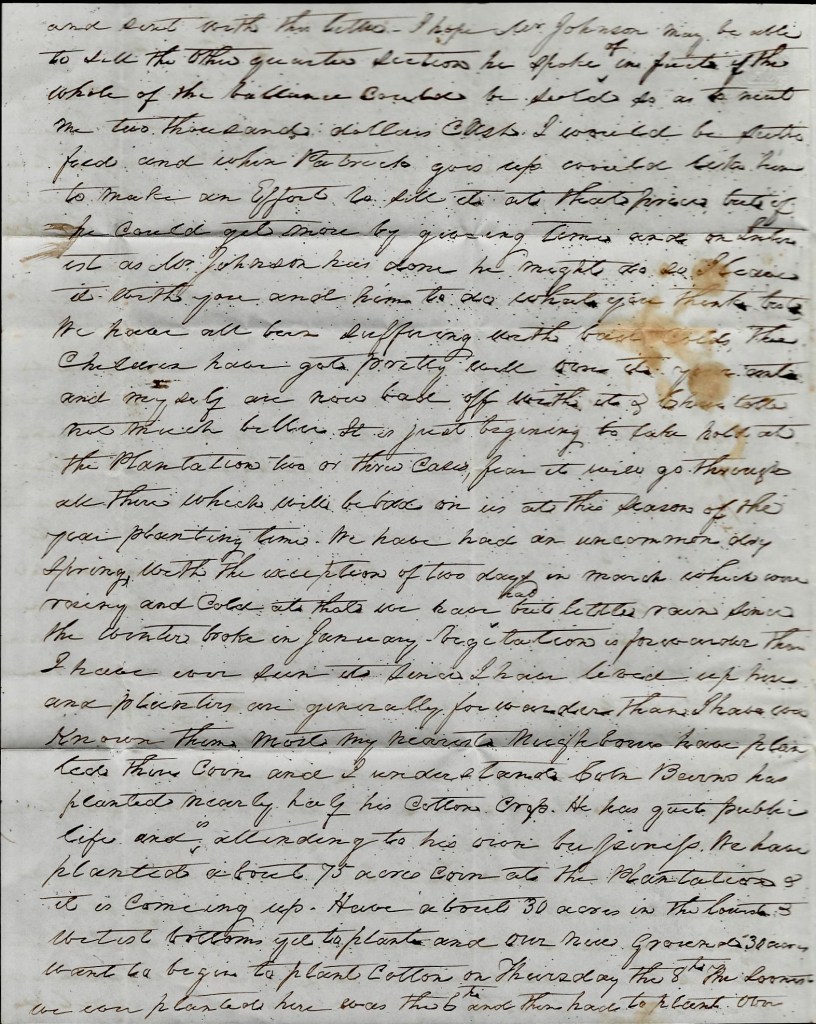 and sent with this letter - I hope Mr Johnson may be able
to sell the other quarter section he spoke of in fact if the
whole of the ballance Could be sold so as to neat
me two thousand dollars Cash I would be satis
fied and when Patrick goes up would like him
to make an Effort to sell it at that price but if
he Could get more by giveing time and on Inter
est as Mr Johnson has done he might do so I leave
it with you and him to do what you think best
We have all been suffering with bad Colds, the
Children have got pretty well over it your aunt
and my self are now bad off with it &
not much better It is just begining to take hold at
the Plantation two or three Cases, fear it will go through
all there which will be bad on us at this season of the
year planting time. We have had an uncommon dry
Spring, with the exception of two days in march which were
rainy and Cold at that we have had but little rain since
the winter broke in January - Vegitation is forwarder than
I have ever seen it since I have lived up here
and planters are generally forwarder than I have ever
Known them most my nearest Neighbours have plan
ted there Corn and I understand Coln Burns has
planted nearly half his Cotton Crop. He has quit public
life and is attending to his own business. We have
planted about 75 acres Corn at the Plantation &
it is Comeing up - Have about 30 acres in the lowest &
wetest bottoms yet to plant and our new Ground 30 acres
want to begin to plant Cotton on Thursday the 8th The soonest
we ever planted here was the 6th and then had to plant over